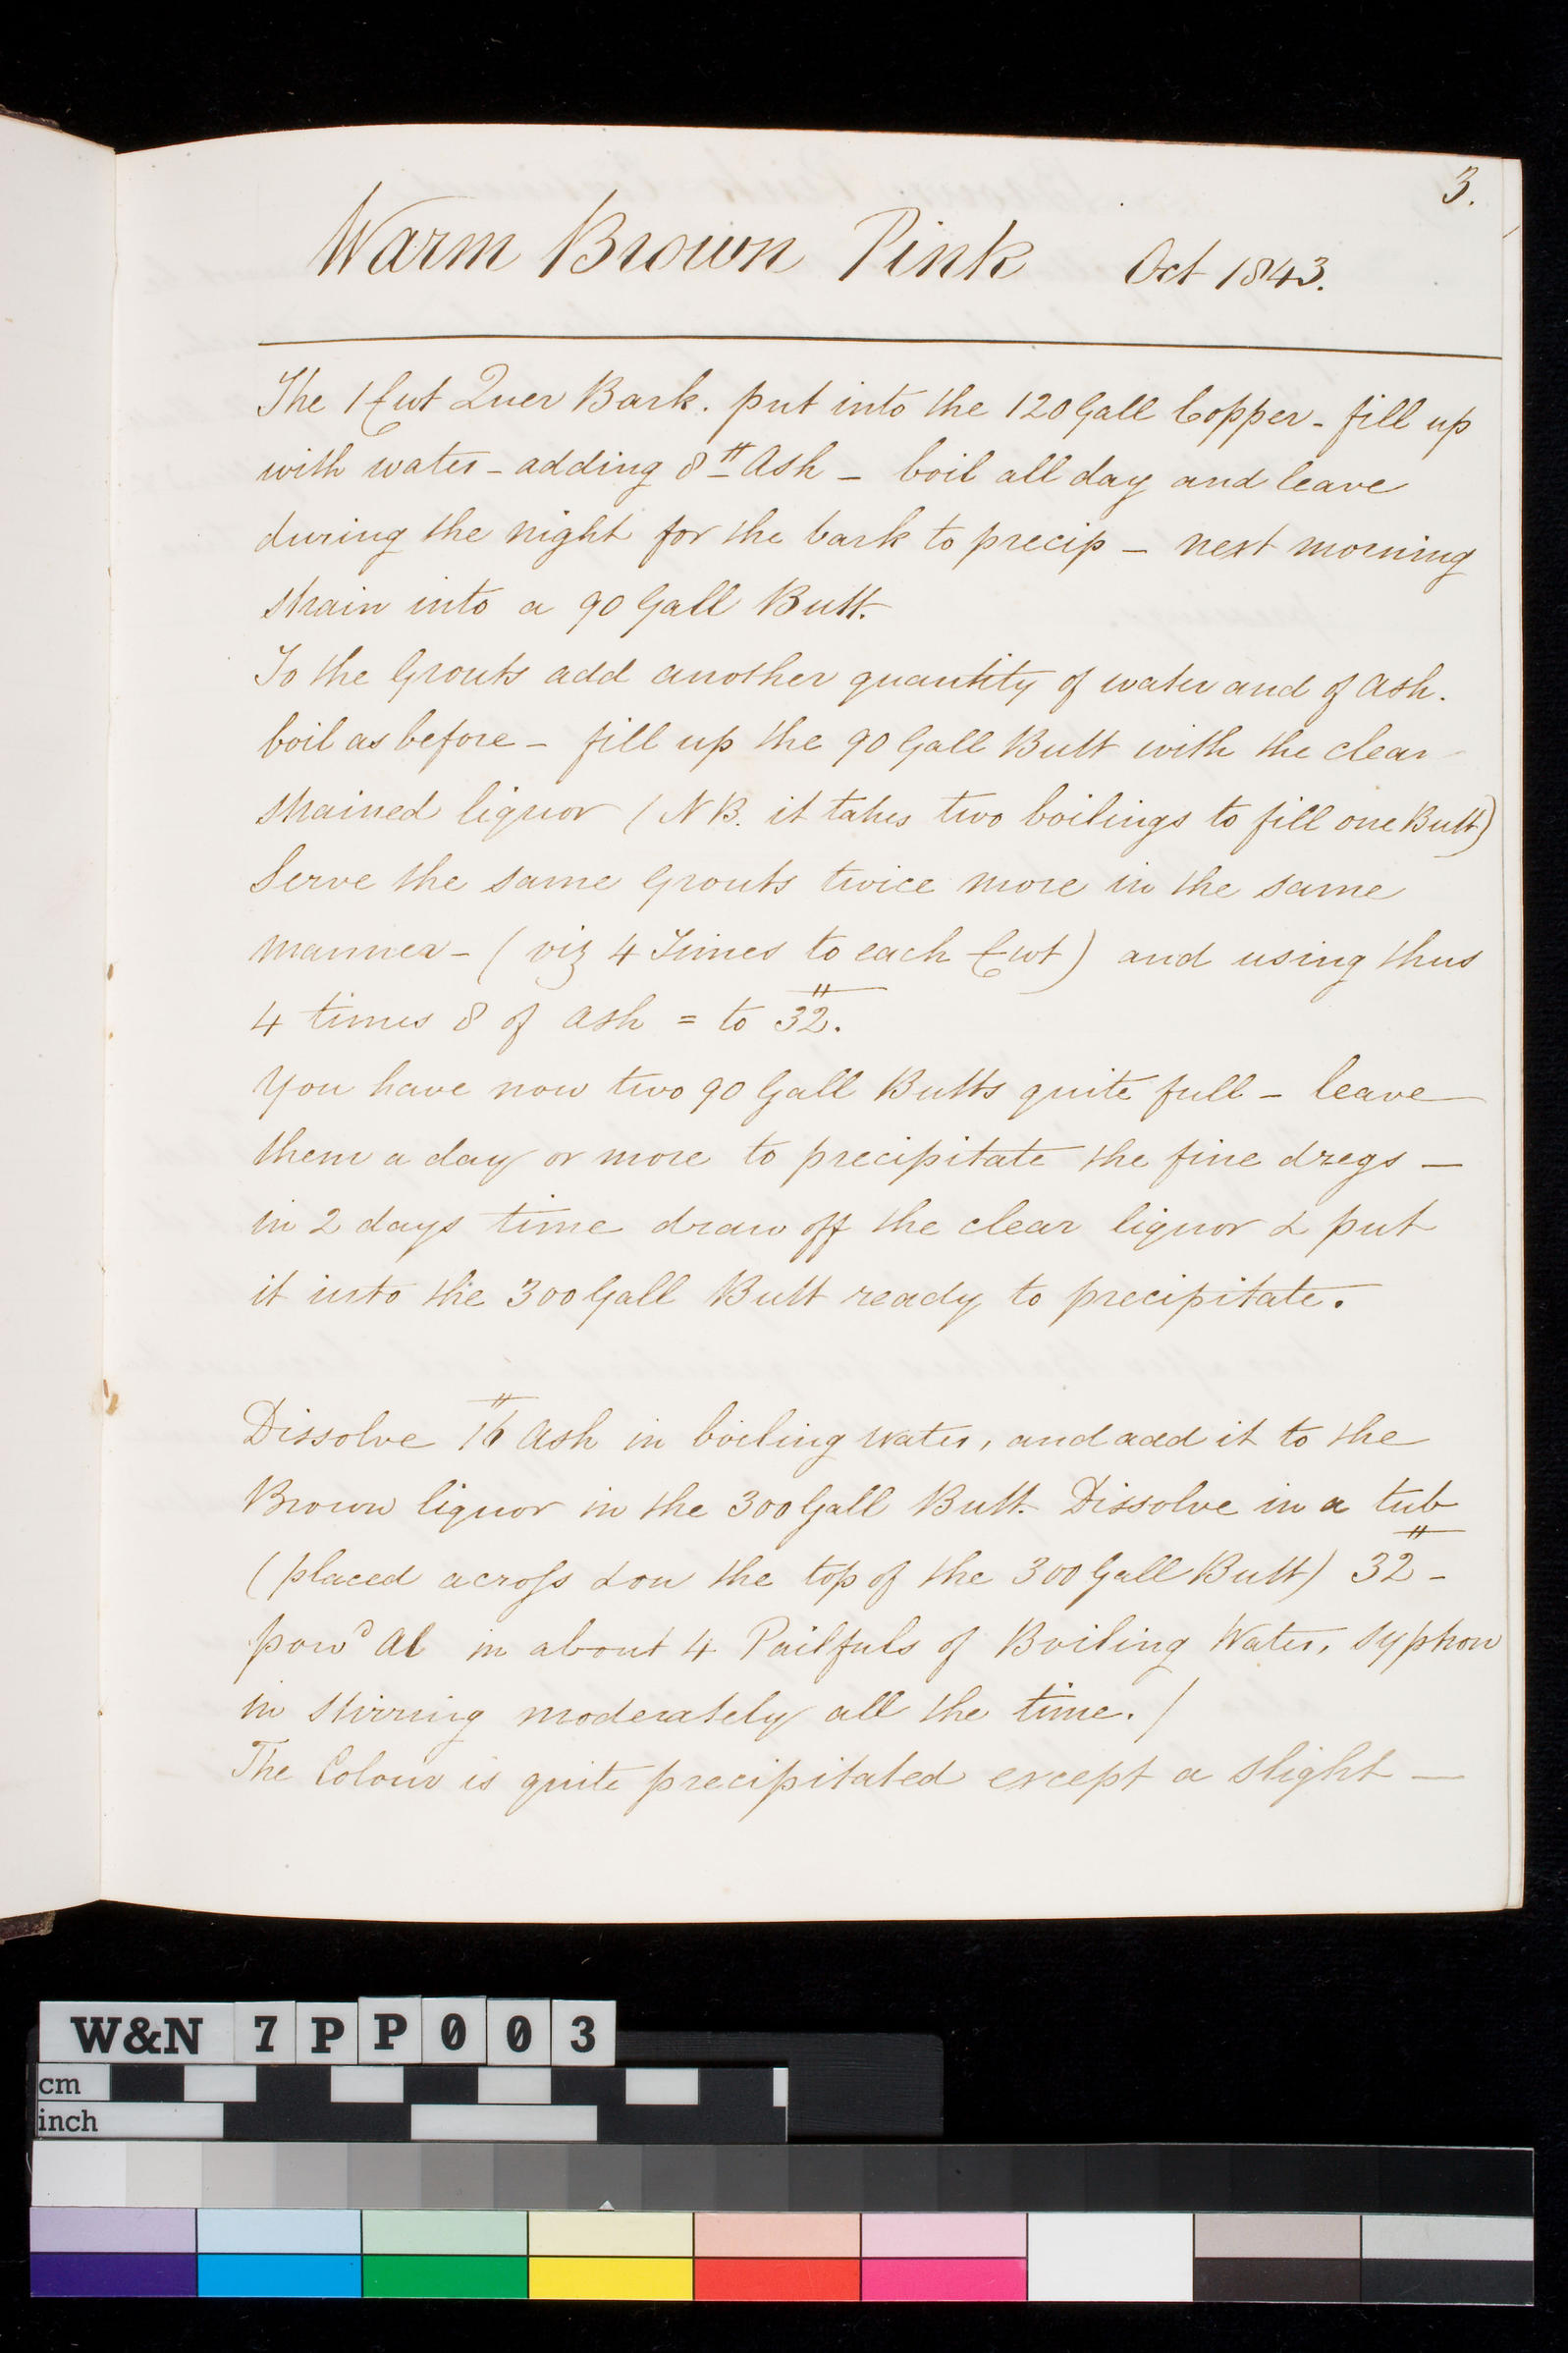 3.
Warm Brown Pink Oct 1843.
The 1 Cwt Quer Bark. put into the 120 Gall Copper - fill up
with water - adding 8 lb Ash - boil all day and leave
during the night for the bark to precip - next morning
strain into a 90 Gall Butt.
To the Grouts add another quantity of water and of Ash.
boil as before - fill up the 90 Gall Butt with the clear
strained liquor (NB. it takes two boilings to fill one Butt)
Serve the same Grouts twice more in the same
manner - (viz 4 Times to each Cwt) and using thus
4 times 8 of Ash = to 32.
You have now two 90 Gall Butts quite full - leave
them a day or more to precipitate the fine dregs -
in 2 days time draw off the clear liquor & put
it into the 300 Gall Butt ready to precipitate.
Dissolve 16 Ash in boiling water, and add it to the
Brown liquor in the 300 Gall Butt. Dissolve in a tub
(placed across & on the top of the 300 Gall Butt) 32 -
powd Al in about 4 Pailfuls of Boiling Water, syphon
in stirring moderately all the time. /
The Colour is quite precipitated except a slight -
W&N 7PP003
cm
inch